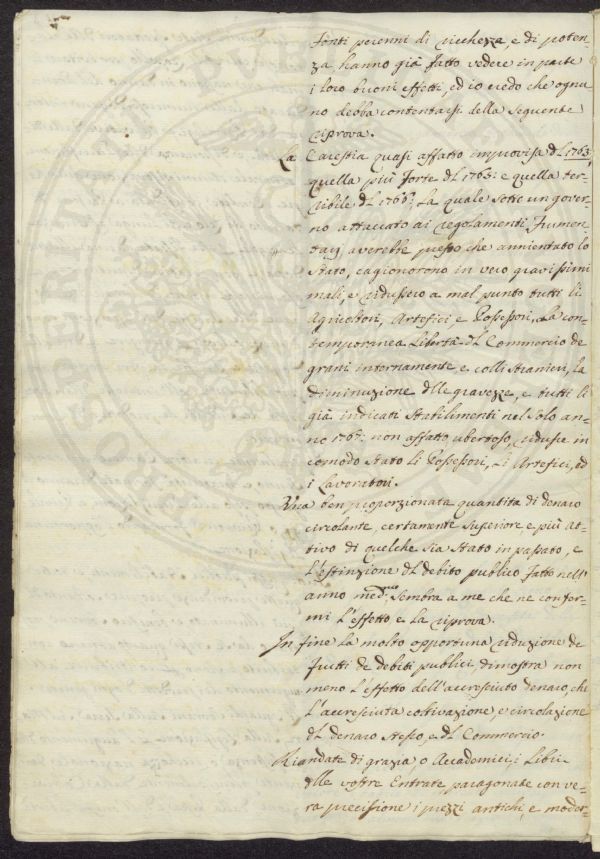 Fonti perenni di ricchezza, e di poten-
za hanno già fatto vedere in parte
i loro buoni effetti, ed io credo che ognu-
no debba contentarsi della seguente
riprova.
La Carestia quasi affatto improvisa dl 1763,
quella più forte dl 1765: e quella ter-
ribile dl 1766: La quale sotto un gover-
no attaccato ai regolamenti Frumen-
tarj averebbe presso che annientato lo
Stato, cagionorono in vero gravissimi
mali, e ridussero a mal punto tutti li
Agricoltori, Artefici, e Possessori, La con-
temporanea Libertà dl Commercio de
grani internamente e colli Stranieri, la
diminuzione dlle gravezze, e tutti li
già indicati Stabilimenti nel solo an-
no 1767: non affatto ubertoso, ridusse in
comodo stato li Possessori, Li Artefici, ed
i Lavoratori.
Una ben proporzionata quantita di denaro
circolante, certamente superiore, e più at-
tivo di quelche sia stato in passato, e
l'estinzione dl debito publico fatto nell'
anno med.mo sembra a me che ne confer-
mi l'effetto e la riprova.
In fine la molto opportuna riduzione de
frutti de debiti publici, dimostra non
meno l'effetto dell'accresciuto denaro, che
l'accresciuta coltivazione, e circolazione
dl denaro stesso, e dl Commercio.
Riandate di grazia o Accademici i Libri
dlle vostre Entrate paragonate con ve-
ra precissione i prezzi antichi, e moder-